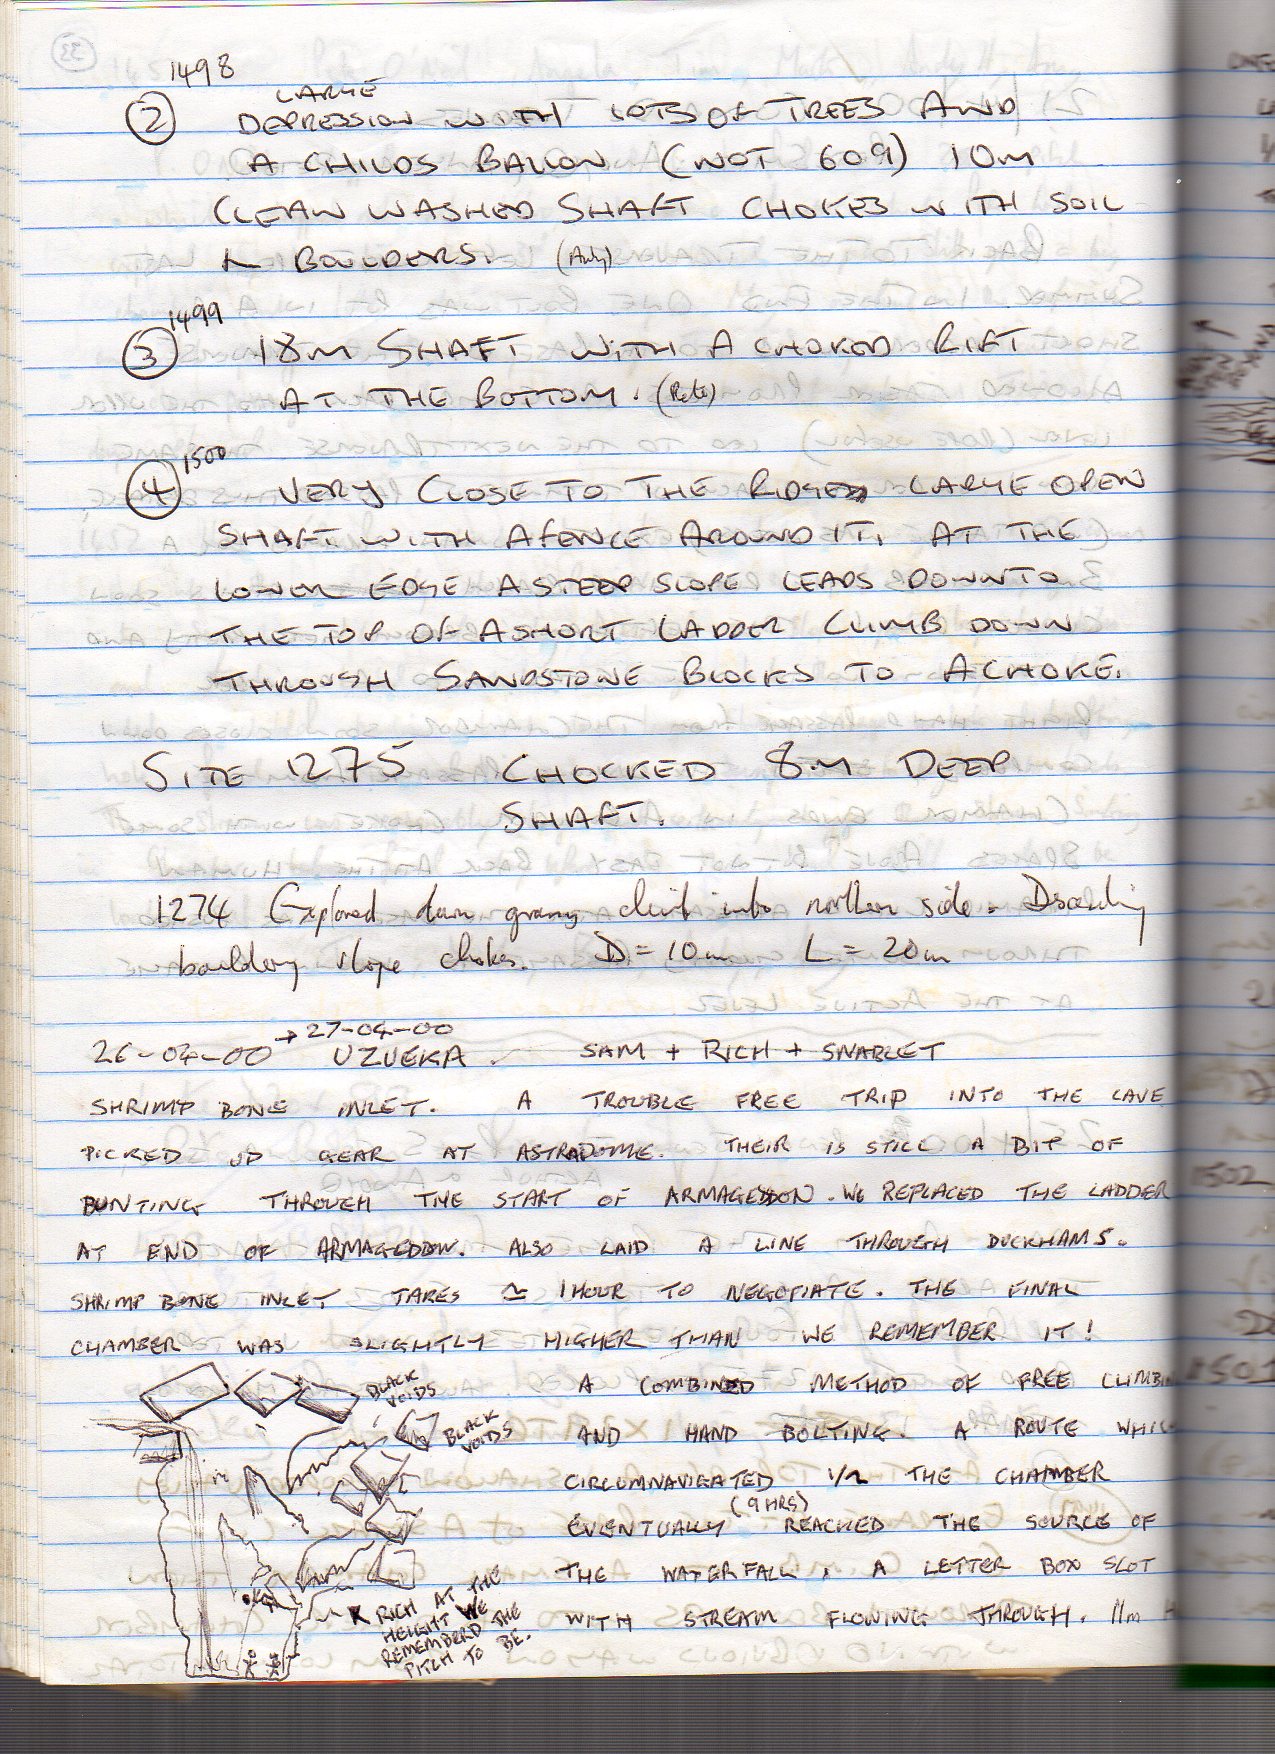 1498
② LARGE
DEPRESSION WITH LOTS OF TREES AND
A CHILDS BALLON (NOT 609) 10M
CLEAN WASHED SHAFT CHOKES WITH SOIL
& BOULDERS. (Andy)
1499
③ 18M SHAFT WITH A CHOKED RIFT
AT THE BOTTOM. (Pete)
1500
④ VERY CLOSE TO THE RIDGE LARGE OPEN
SHAFT WITH A FENCE AROUND IT, AT THE
LOWER EDGE A STEEP SLOPE LEADS DOWN TO
THE TOP OF A SHORT LADDER CLIMB DOWN
THROUGH SANDSTONE BLOCKS TO A CHOKE.
SITE 1275 CHOCKED 8M DEEP
SHAFT.
1274 Explored down grassy climb into northern side. Descending
bouldery slope chokes. D = 10m L = 20m
26-04-00 → 27-04-00 UZUEKA. SAM + RICH + SNABLET
SHRIMP BONE INLET. A TROUBLE FREE TRIP INTO THE CAVE
PICKED UP GEAR AT ASTRADOME. THEIR IS STILL A BIT OF
BUNTING THROUGH THE START OF ARMAGEDDON. WE REPLACED THE LADDER
AT END OF ARMAGEDDON. ALSO LAID A LINE THROUGH DUCKHAMS.
SHRIMP BONE INLET TAKES ≃ 1 HOUR TO NEGOTIATE. THE FINAL
CHAMBER WAS SLIGHTLY HIGHER THAN WE REMEMBER IT!
A COMBINED METHOD OF FREE CLIMBIN
AND HAND BOLTING. A ROUTE WHIC
CIRCUMNAVIGATED 1/2 THE CHAMBER
EVENTUALLY (9 HRS) REACHED THE SOURCE OF
THE WATERFALL, A LETTER BOX SLOT
WITH STREAM FLOWING THROUGH. 11m H
BLACK
VOIDS
BLACK
VOIDS
RICH AT THE
HEIGHT WE
REMEMBERD THE
PITCH TO BE.
1502
1501